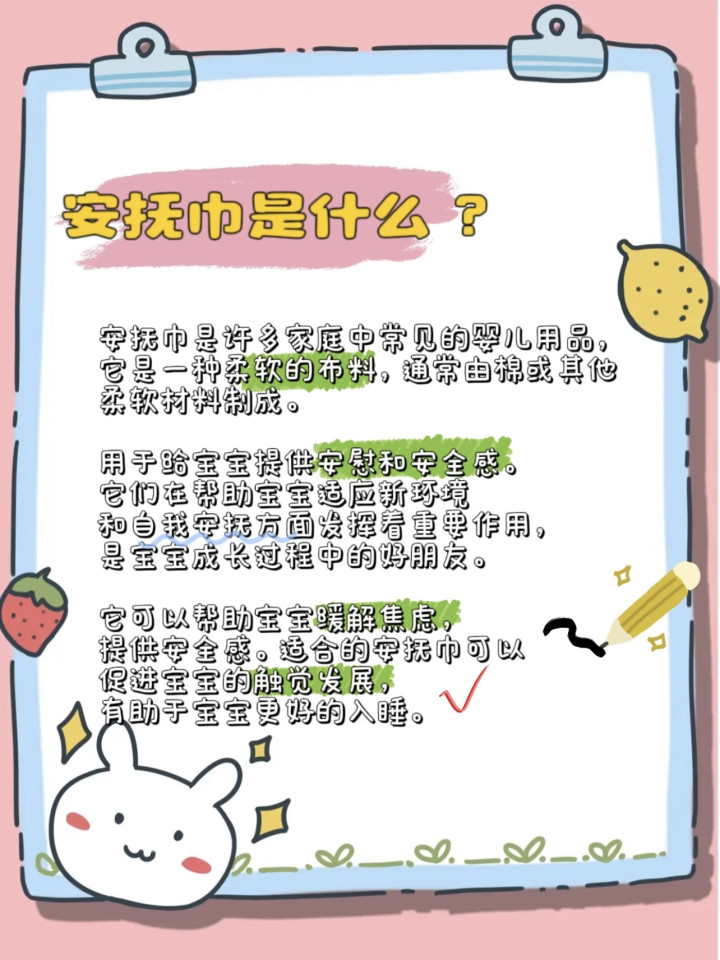 安抚巾是什么？
安抚巾是许多家庭中常见的婴儿用品，
它是一种柔软的布料，通常由棉或其他
柔软材料制成。
用于给宝宝提供安慰和安全感。
它们在帮助宝宝适应新环境
和自我安抚方面发挥着重要作用，
是宝宝成长过程中的好朋友。
它可以帮助宝宝缓解焦虑，
提供安全感。适合的安抚巾可以
促进宝宝的触觉发展，
有助于宝宝更好的入睡。